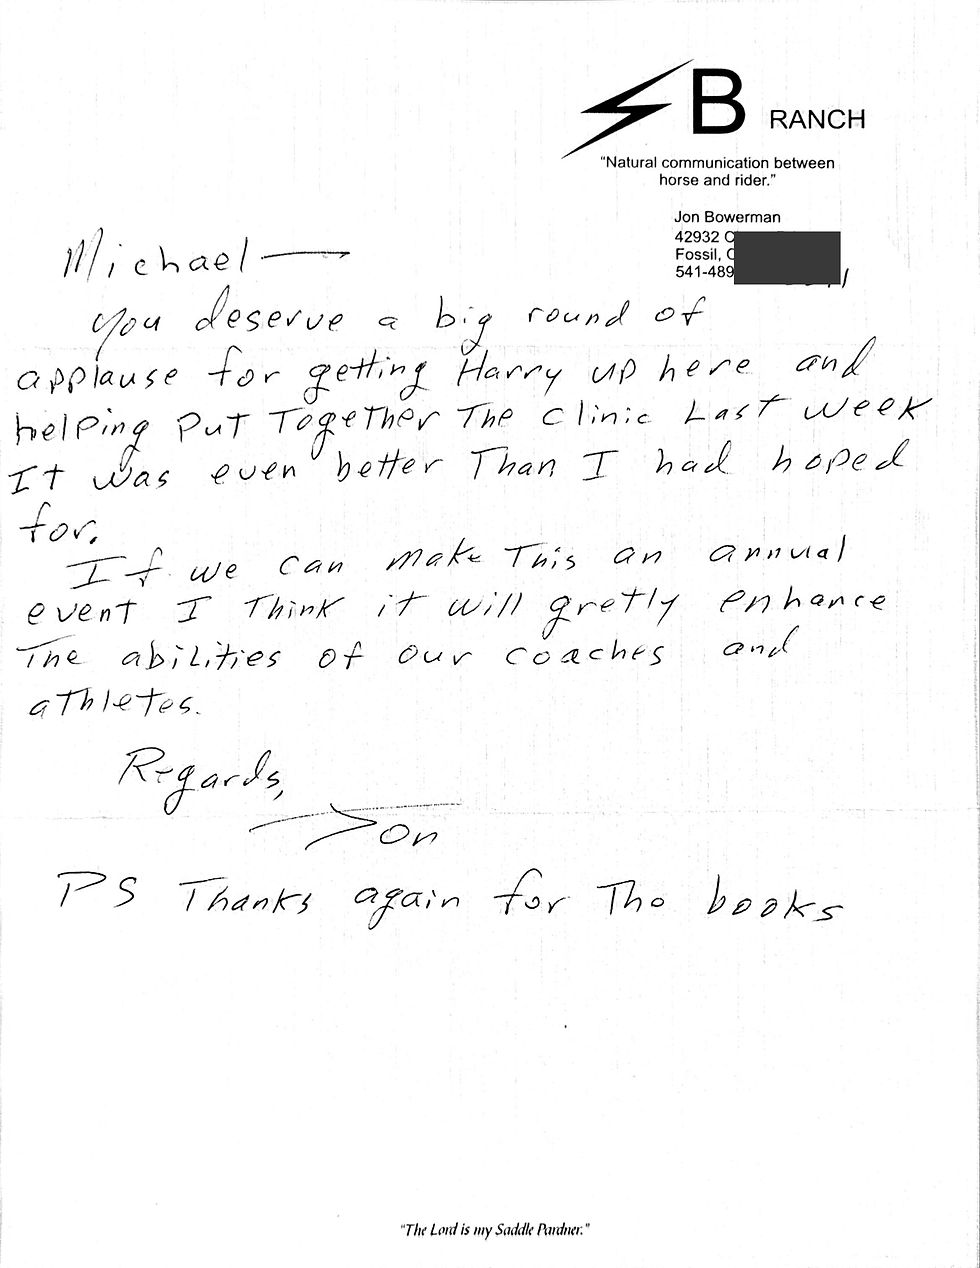 B RANCH
"Natural communication between
horse and rider."
Jon Bowerman
42932
Fossil,
541-489
Michael —
you deserve a big round of
applause for getting Harry up here and
helping put Together The clinic Last week
It was even better Than I had hoped
for.
If we can make This an annual
event I Think it will gretly enhance
The abilities of our coaches and
athletes.
Regards,
Jon
PS Thanks again for The books
"The Lord is my Saddle Pardner."